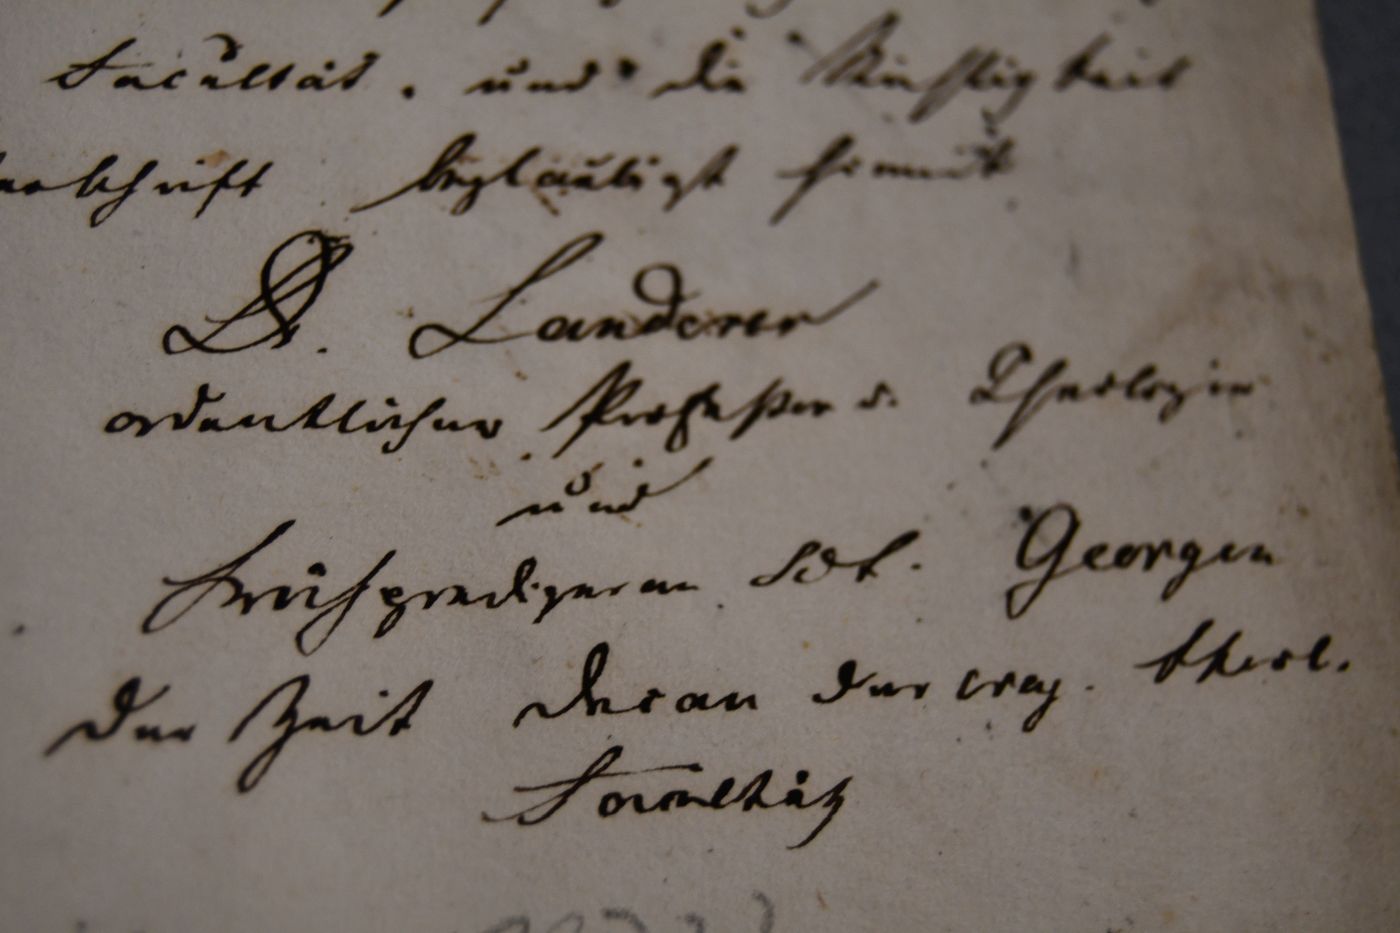 Facultät, und die Richtigkeit
beglaubigt hiemit
Dr. Landerer
ordentlicher Professor d. Theologie
und
Frühprediger an Sct. Georgen
der Zeit Decan der evg. theol.
Facultät